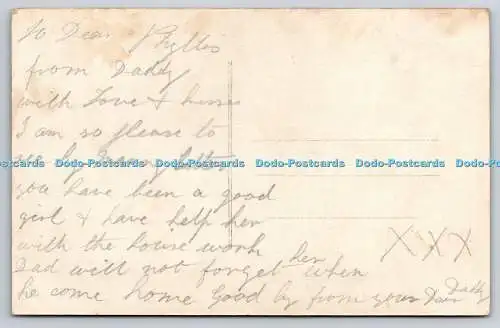 To Dear Phyllis
from Daddy
with Love & kisses
I am so please to
see by mammy letter
you have been a good
girl & have help her
with the house work
Dad will not forget her when
he come home Good by from your Dear Daddy
X X X
Dodo-Postcards Dodo-Postcards Dodo-Postcards Dodo-Postcards Dodo-Postcards